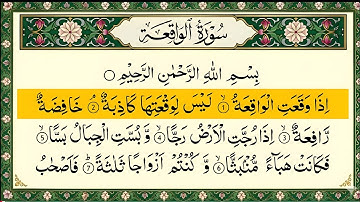 سُوْرَةُ الْوَاقِعَةِ
بِسْمِ اللّٰهِ الرَّحْمٰنِ الرَّحِیْمِ ○
اِذَا وَقَعَتِ الْوَاقِعَةُ ۙ﴿۱﴾ لَیْسَ لِوَقْعَتِهَا كَاذِبَةٌ ۘ﴿۲﴾ خَافِضَةٌ
رَّافِعَةٌ ۙ﴿۳﴾ اِذَا رُجَّتِ الْاَرْضُ رَجًّا ۙ﴿۴﴾ وَّ بُسَّتِ الْجِبَالُ بَسًّا ۙ﴿۵﴾
فَكَانَتْ هَبَآءً مُّنْۢبَثًّا ۙ﴿۶﴾ وَّ كُنْتُمْ اَزْوَاجًا ثَلٰثَةً ؕ﴿۷﴾ فَاَصْحٰبُ